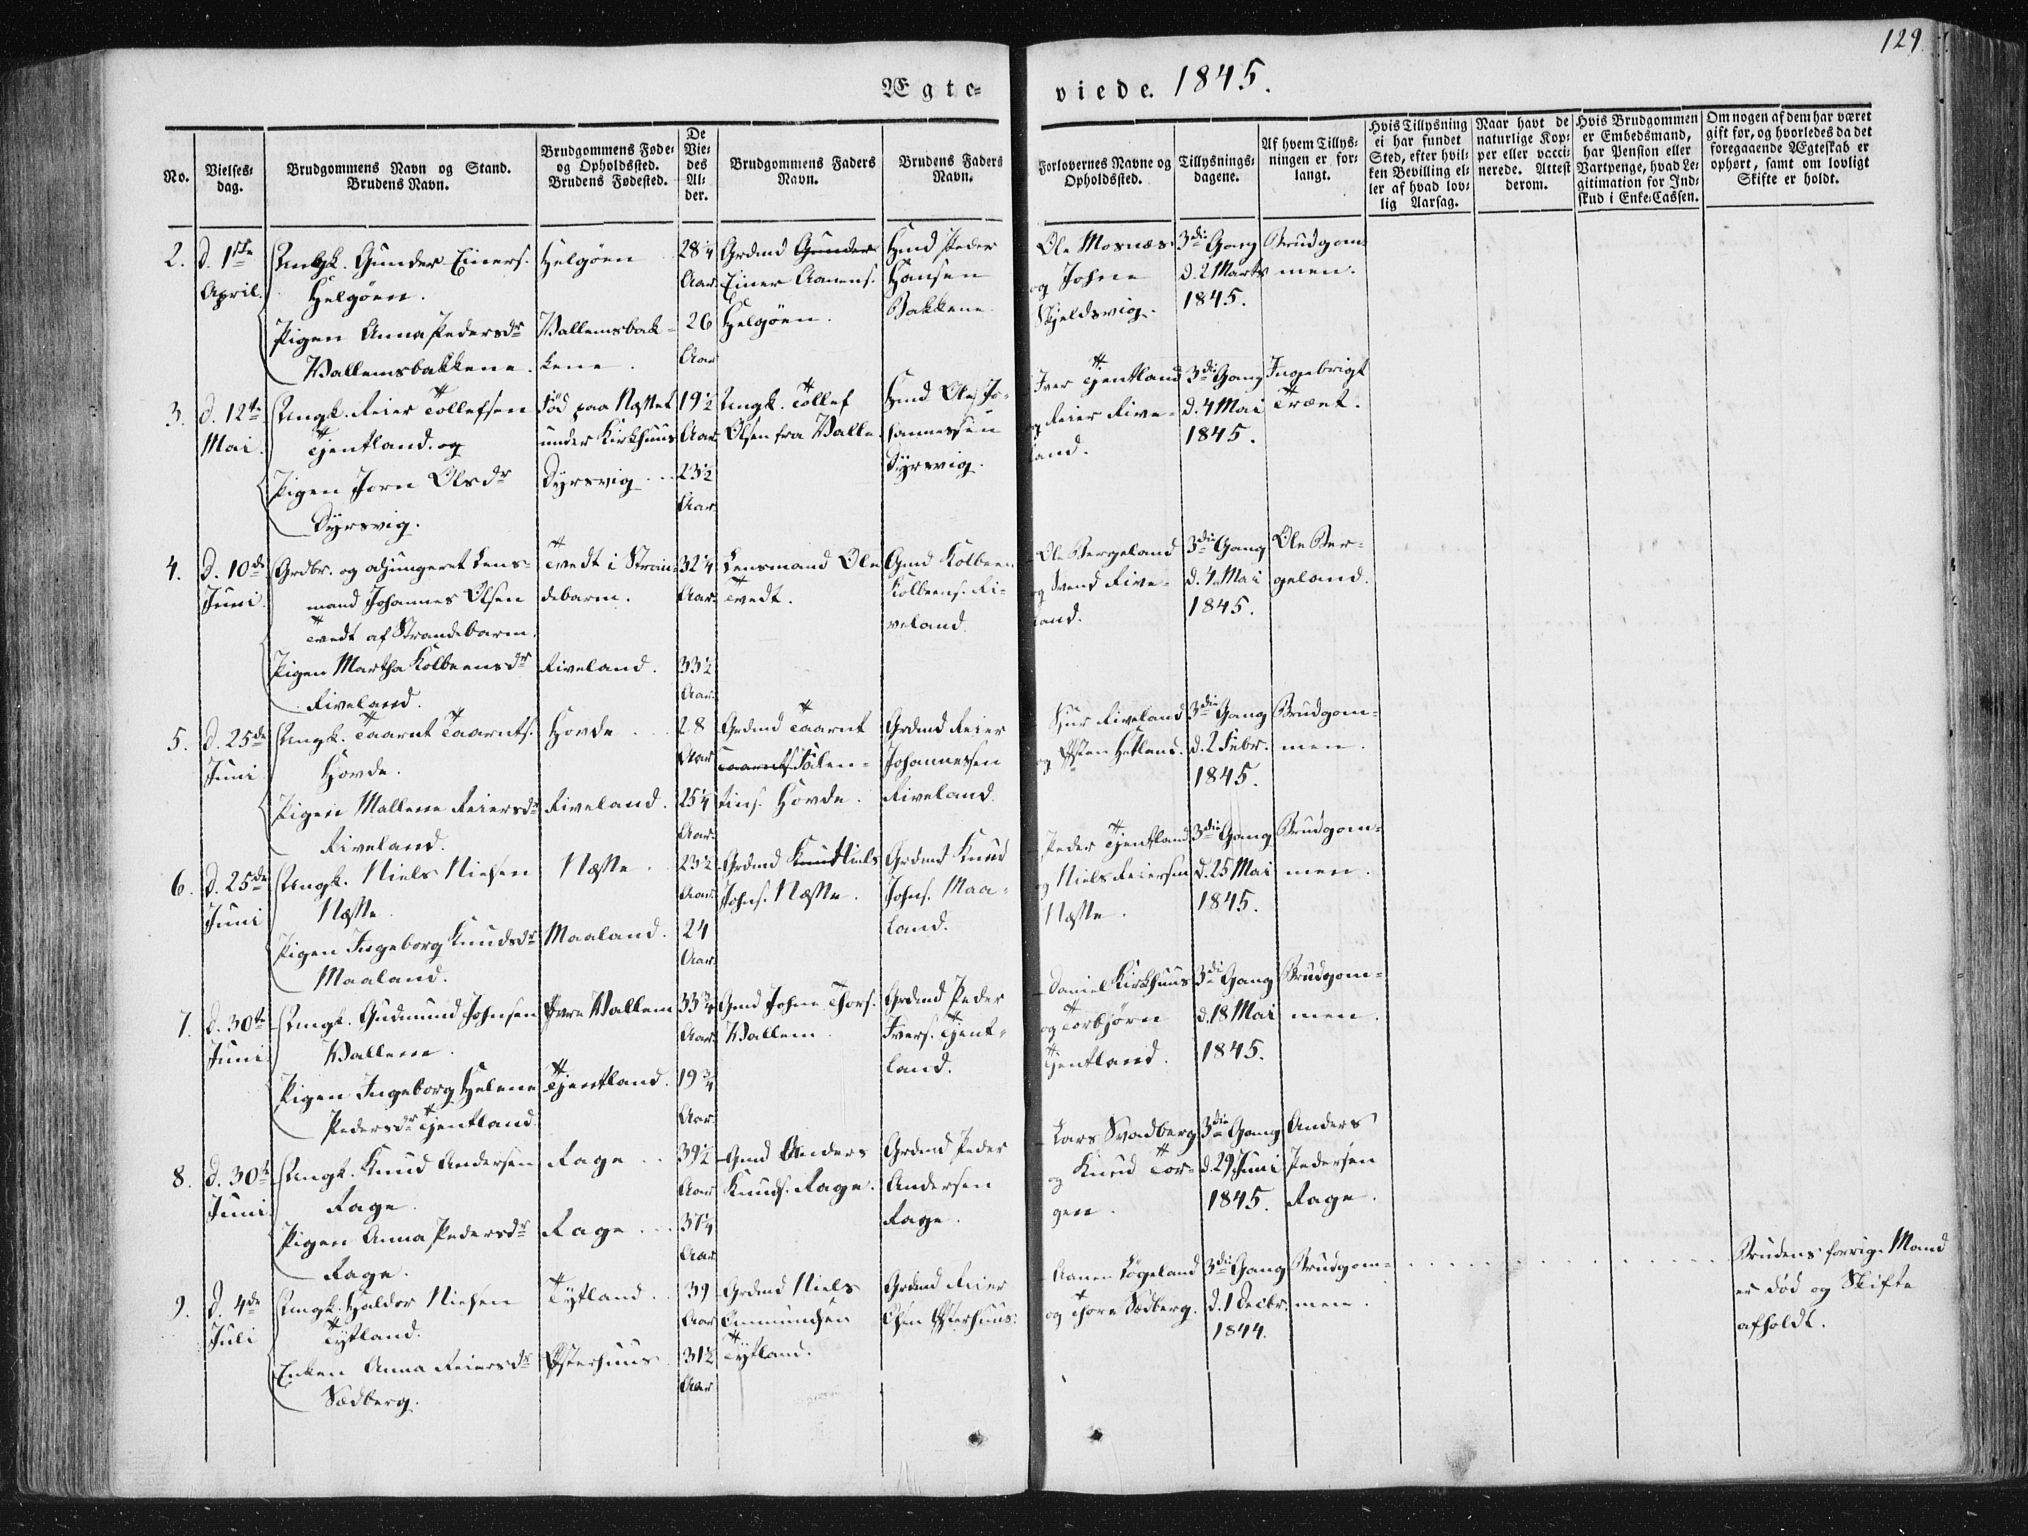 129.
Ægte-
viede. 1845.
No.
Vielses-
dag.
Brudgommens Navn og Stand.
Brudens Navn.
Brudgommens Føde-
og Opholdssted.
Brudens Fødested.
De
Vie-
des
Al-
der.
Brudgommens Faders
Navn.
Brudens Faders
Navn.
Forlovernes Navne og
Opholdssted.
Tillysnings-
dagene.
Af hvem Tillys-
ningen er for-
langt.
Hvis Tillysning
ei har fundet
Sted, efter hvil-
ken Bevilling el-
ler af hvad lov-
lig Aarsag.
Naar havt de
naturlige Kop-
per eller vacci-
nerede. Attest
derom.
Hvis Brudgommen
er Embedsmand,
har Pension eller
Vartpenge, hvad Le-
gitimation for Ind-
skud i Enke-Cassen.
Om nogen af dem har været
gift før, og hvorledes da det
foregaaende Ægteskab er
ophørt, samt om lovligt
Skifte er holdt.
2.
d. 1ste
April.
Ungk. Gunder Einers.
Helgøen.
Pigen Anna Pedersdr
Vallemsbakkene.
Helgøen
Vallemsbak-
kene.
28 1/4
Aar
26
Aar
Grdmd Gunder
Einer Aanens.
Helgøen.
Hmd Peder
Hansen
Bakkene
Ole Mosnæs
og John
Skjeldsvig.
3die Gang
d. 2 Marts
1845.
Brudgom-
men.
3.
d. 12te
Mai.
Ungk. Reier Tollefsen
Tjentland. og
Pigen Jorn Olsdr
Dyrsvig.
Fød paa Næsset
under Kirkhuus
Dyrsvig
19 1/2
Aar
23 1/2
Aar
Ungk. Tollef
Olsen fra Valle
Hmd Ole Jo-
hannessen
Dyrsvig.
Iver Tjentland
og Reier Rive-
land.
3die Gang
d. 4 Mai
1845.
Ingebrigt
Træet.
4.
d. 10de
Juni.
Grdbr. og adjungeret Lens-
mand Johannes Olsen
Tvedt af Strandebarm.
Pigen Martha Kolbeensdr
Riveland.
Tvedt i Stran-
debarm.
Riveland.
32 1/4
Aar
33 1/2
Aar
Lensmand Ole
Tvedt.
Gmd Kolbeen
Kolbeens. Ri-
veland
Ole Bergeland
og Svend Rive-
land.
3die Gang
d. 4 Mai
1845.
Ole Ber-
geland.
5.
d. 25de
Juni
Ungk. Taarnt Taarnts.
Hovde.
Pigen Mallene Reiersdr
Riveland.
Hovde
Riveland.
28
Aar
25 1/4
Aar
Grdmd Taarnt
Taarnts. Valen-
tins. Hovde.
Grdmd Reier
Johannessen
Riveland
Sjur Riveland
og Østen Hetland.
3die Gang
d. 2 Febr.
1845.
Brudgom-
men.
6.
d. 25de
Juni
Ungk. Niels Nielsen
Næsse
Pigen Ingeborg Knudsdr
Maaland.
Næsse
Maaland.
23 1/2
Aar
24
Aar
Grdmd Knud Niels
Johns. Næsse.
Grdmd Knud
Johns. Maa-
land.
Peder Tjentland
og Niels Reiersen
Næsse.
3die Gang
d. 25 Mai
1845.
Brudgom-
men.
7.
d. 30te
Juni
Ungk. Gudmund Johnsen
Vallem.
Pigen Ingeborg Helene
Pedersdr Tjentland.
Øvre Vallem
Tjentland.
33 3/4
Aar
19 3/4
Aar
Gmd John Thors.
Vallem.
Grdmd Peder
Ivers. Tjent-
land.
Daniel Kirkhuus
og Torbjørn
Tjentland.
3die Gang
d. 18 Mai
1845.
Brudgom-
men.
8.
d. 30te
Juni
Ungk. Knud Andersen
Rage.
Pigen Anna Pedersdr
Rage.
Rage
Rage
39 1/2
Aar
37 1/4
Aar
Gmd Anders
Knuds. Rage.
Grdmd Peder
Andersen
Rage.
Lars Svadberg
og Knud Tor-
gen.
3die Gang
d. 29 Juni
1845.
Anders
Pedersen
Rage.
9.
d. 4de
Juli
Ungk. Haldor Nielsen
Tytland.
Enken Anna Reiersdr
Sædberg.
Tytland
Østerhuus
39
Aar
31 1/2
Aar
Grdmd Niels
Ommundsen
Tytland.
Grdmd Reier
Olsen Østerhuus.
Aanen Løgeland
og Thore Sædberg.
3die Gang
d. 1 Decbr.
1844.
Brudgom-
men.
Brudens forrige Mand
er død og Skifte
afholdt.